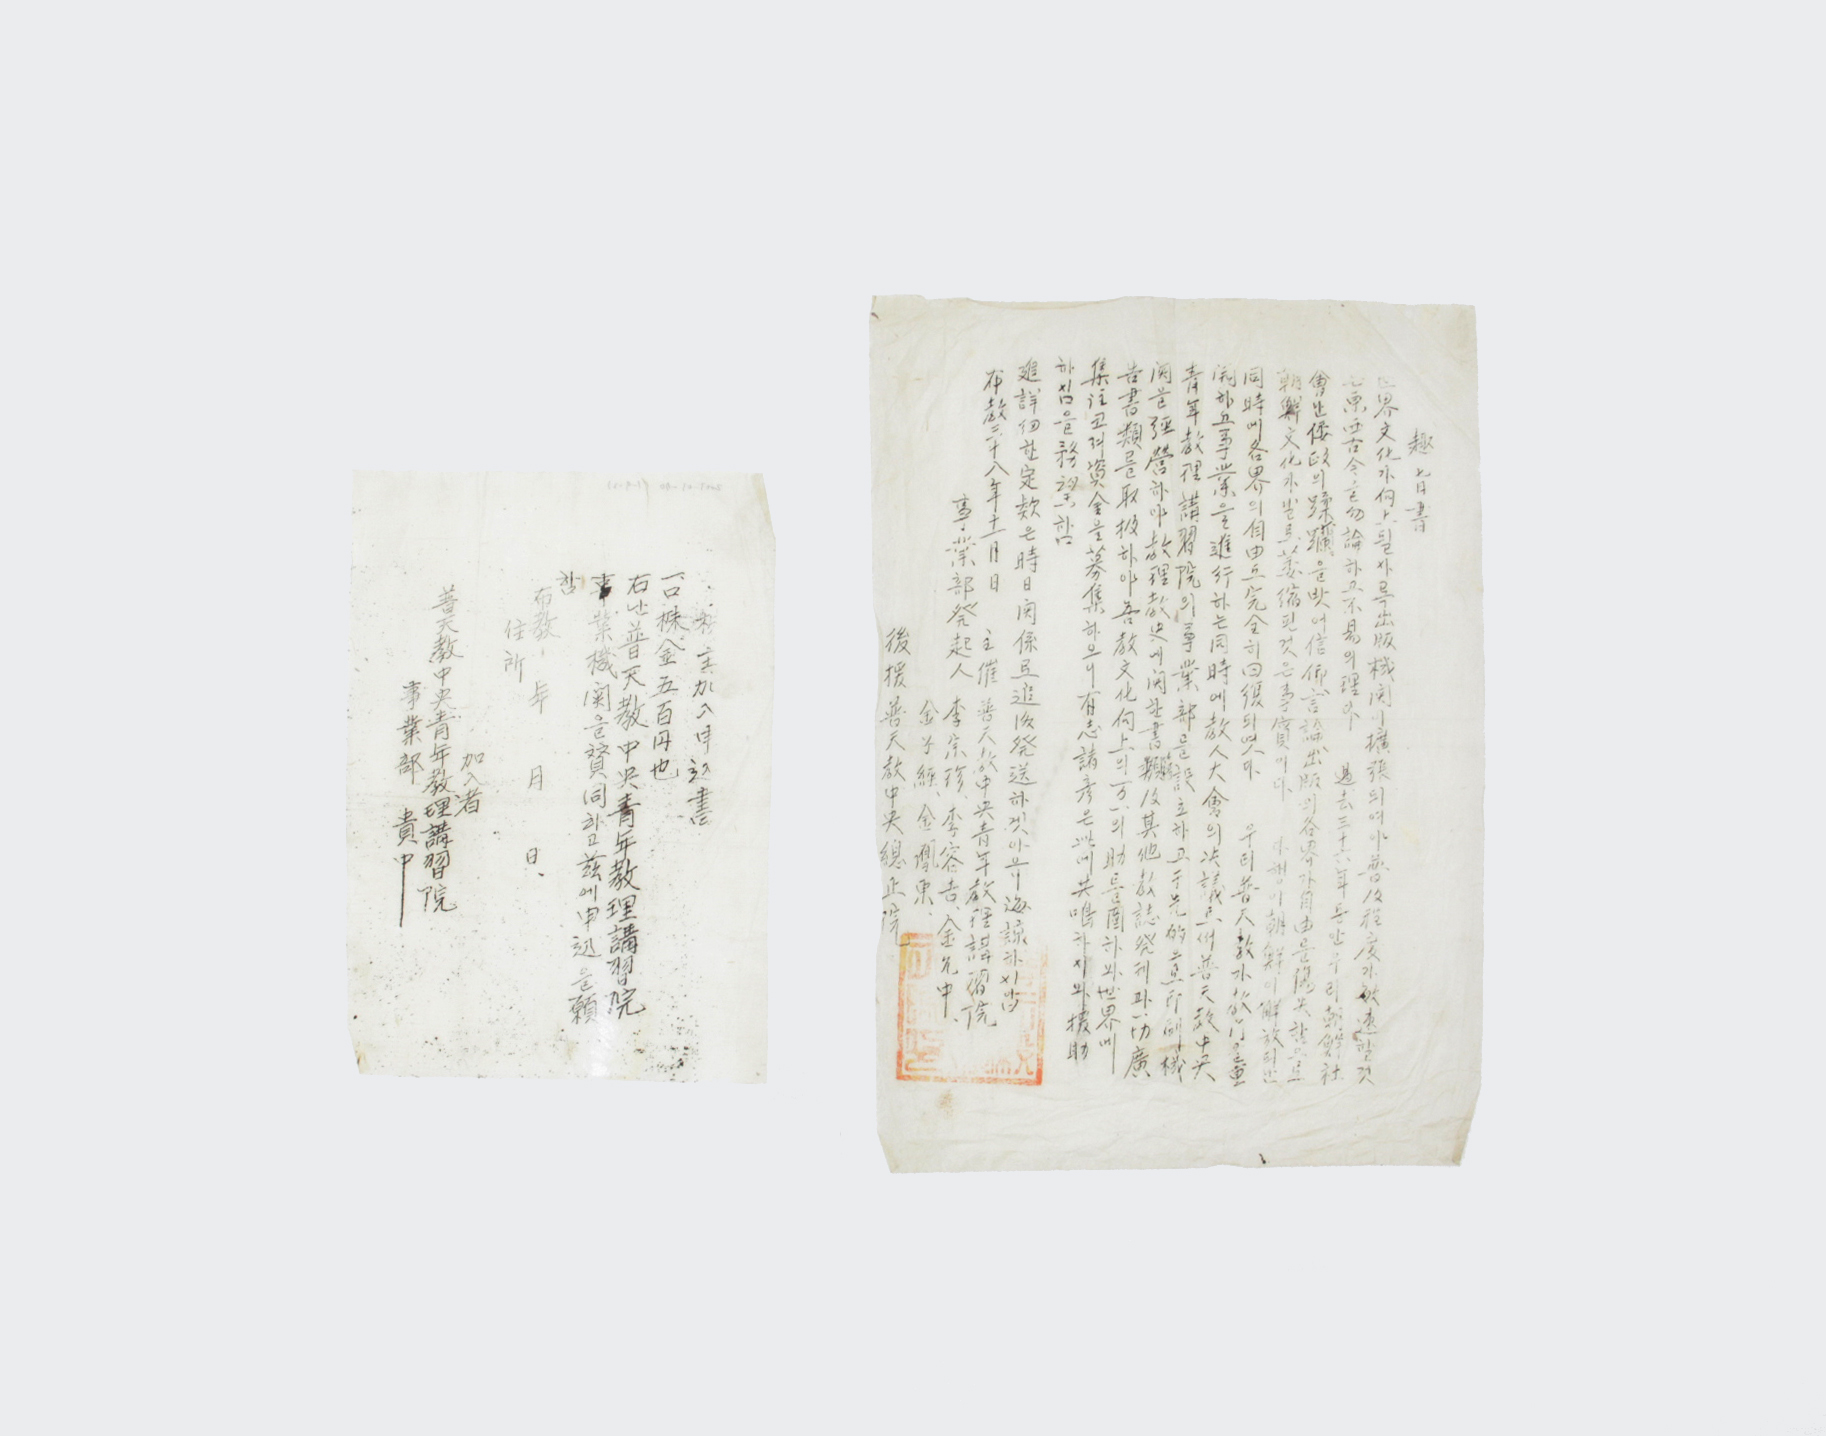 趣旨書
世界文化가向上될사록出版機関이擴張되여야普及程度가敏速할것
은東西古今을勿論하고不易의理이다 過去三十六年동안우리朝鮮社
會난倭政의蹂躪을밧어信仰言論出版의各界가自由를喪失함으로
朝鮮文化가발로萎縮된것은事實이다 何幸이朝鮮이解放되난
同時에各界의自由도完全히回復되엿다 우리普天敎가敎門을重
開하고事業을進行하는同時에敎人大會의決議로써普天敎中央
靑年敎理講習院의事業部를設立하고于先的으로印刷機
関을經營하야敎理敎史에関한書類及其他敎誌發刊과一切廣
告書類를取扱하야吾敎文化向上의万一의助를圖하와世界에
集注코저資金을募集하오니有志諸彦은此에共鳴하시와援助
하심을務望함
追詳細한定款은時日関係로追後發送하겟아오니海諒하시압
布敎三十八年十一月日 主催 普天敎中央靑年敎理講習院
事業部發起人 李宗珍、李容吉、金允中、
金子經、金鳳東、
後援 普天敎中央總正院
株主加入申込書
一口株金五百円也
右난普天敎中央靑年敎理講習院
事業機関을贊同하고玆에申込을願
함
布敎 年 月 日、
住所
加入者
普天敎中央靑年敎理講習院
事業部 貴中